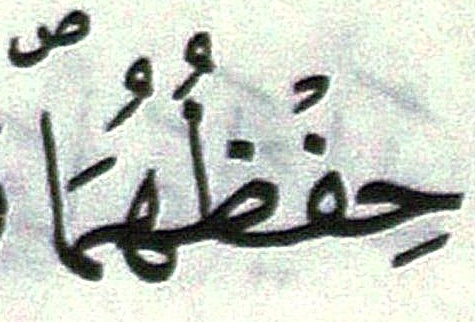 حِفْظُهُمَا ص